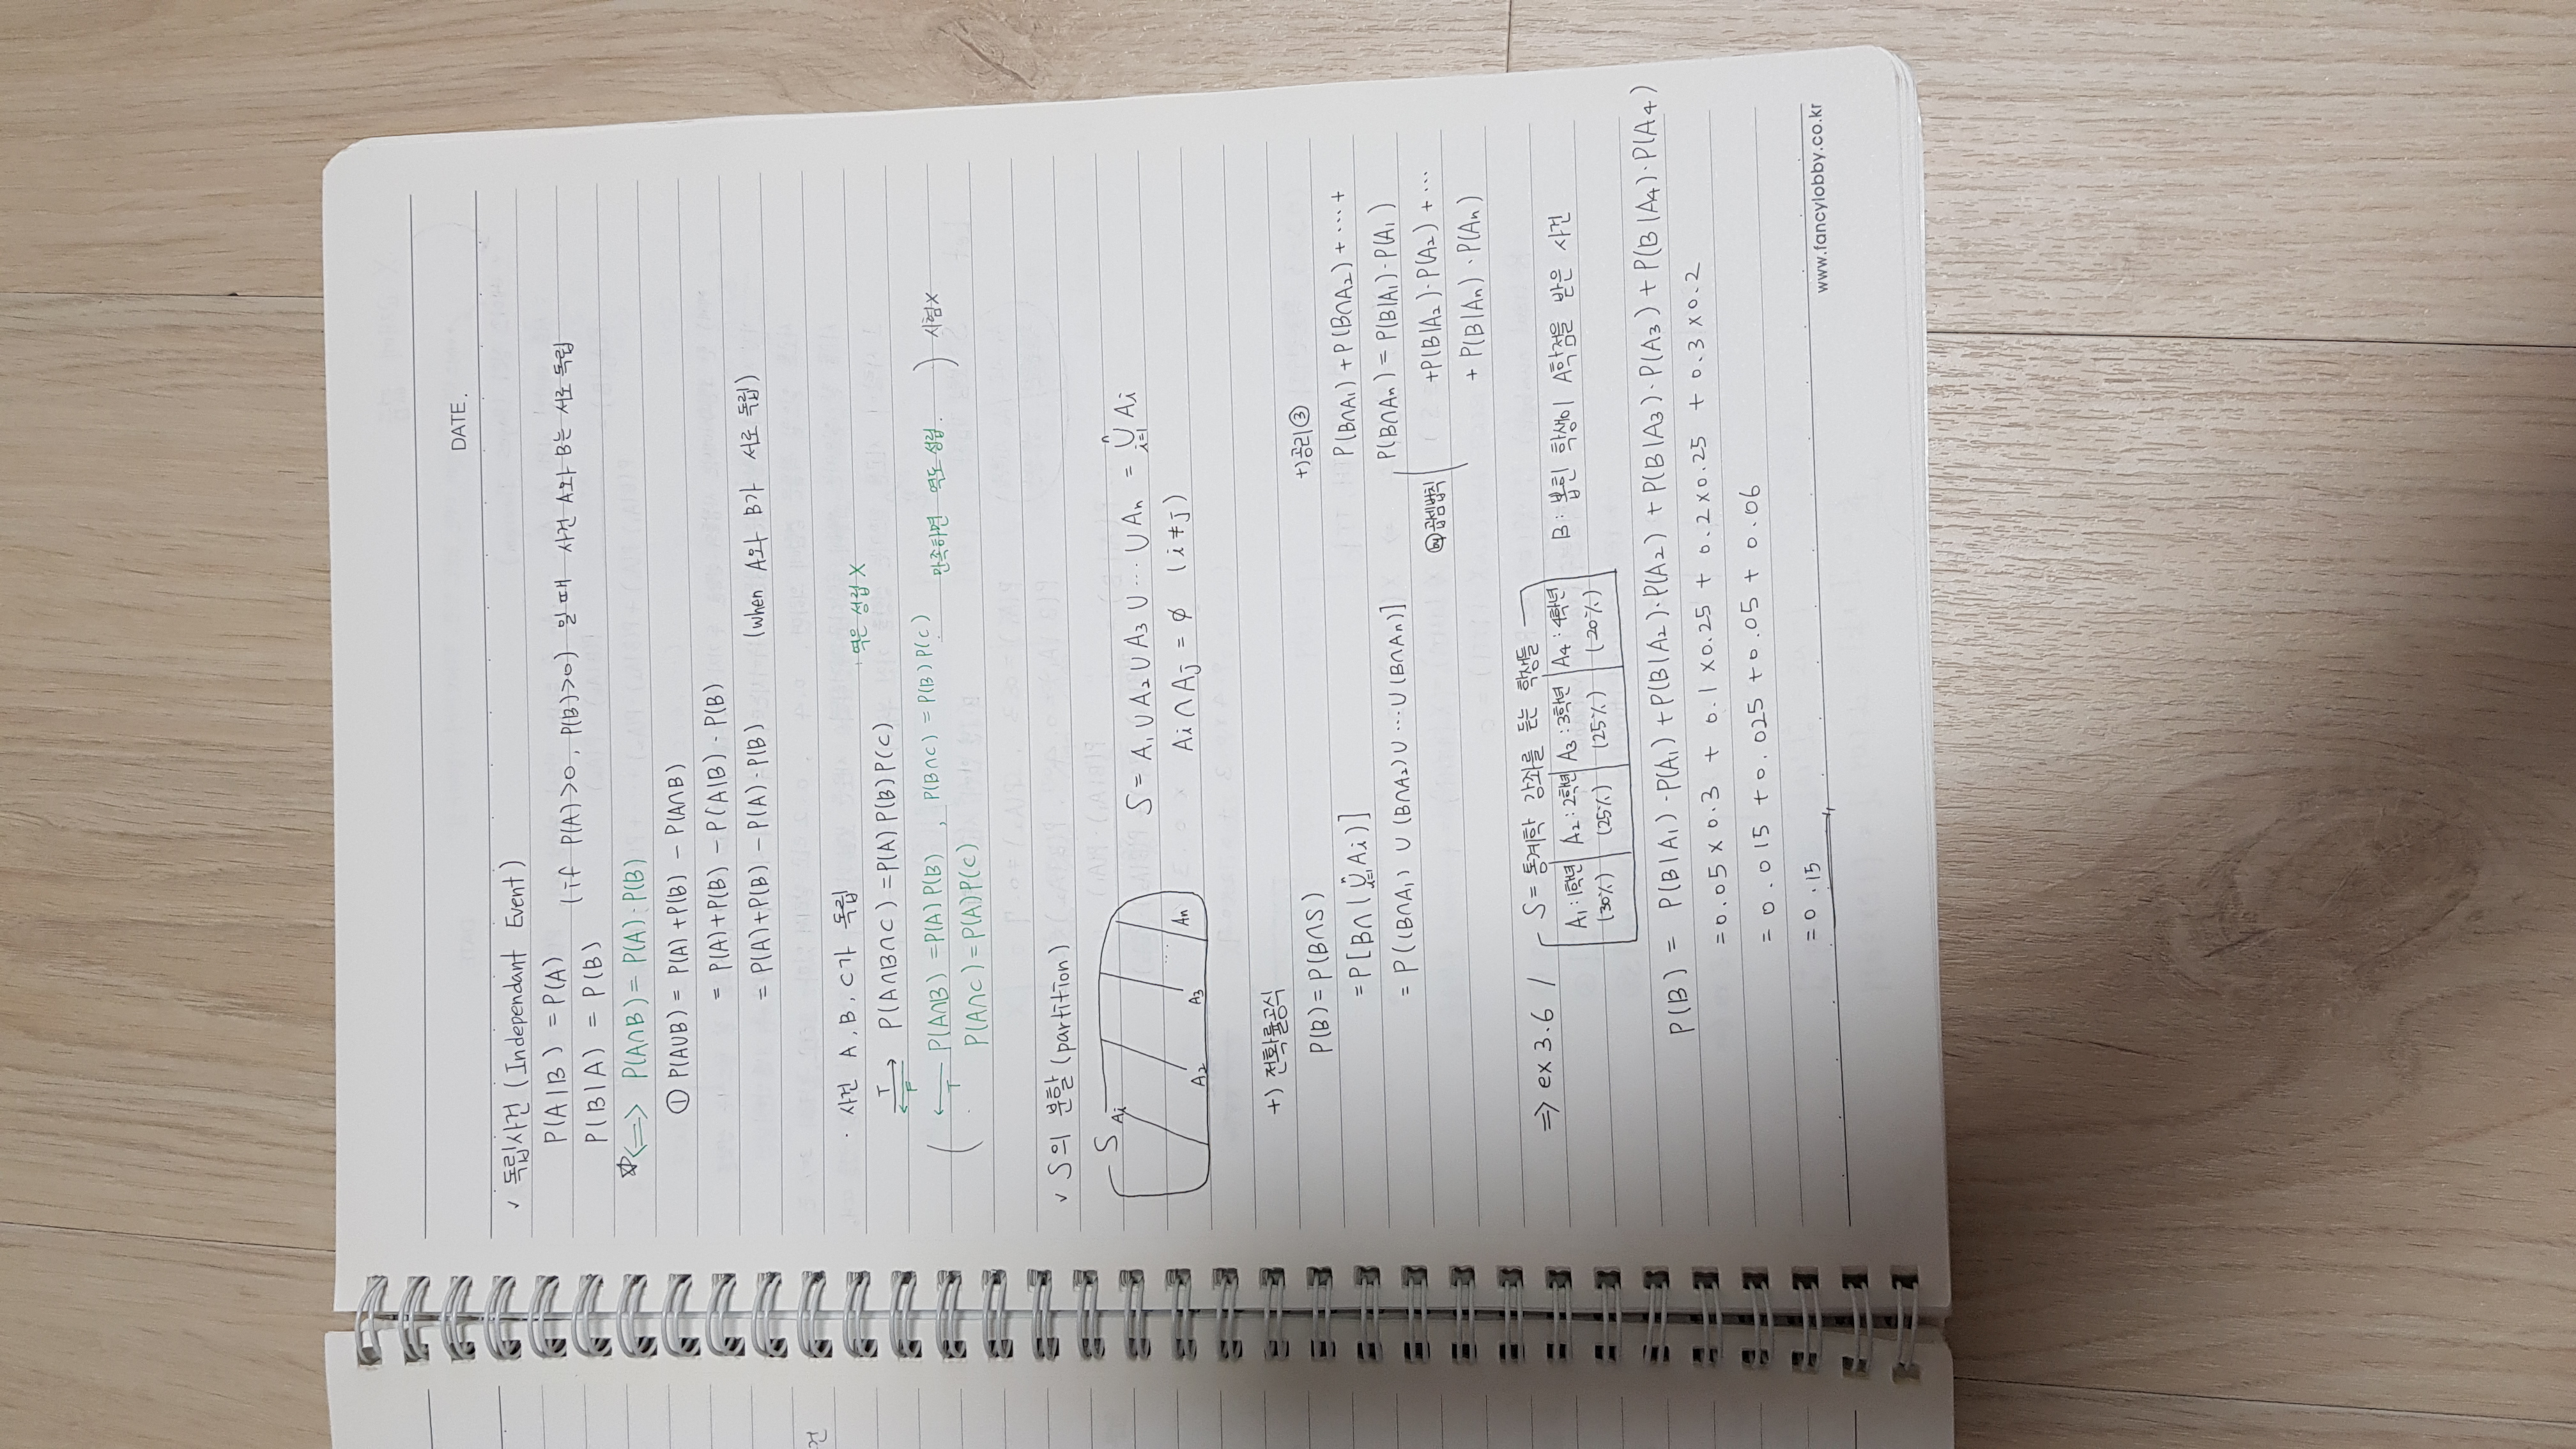 건
DATE.
✓ 독립사건 (Independant Event)
P(A|B) = P(A)
(if P(A)>0, P(B)>0) 일 때 사건 A와 B는 서로 독립
P(B|A) = P(B)
☆⟺ P(A∩B) = P(A)·P(B)
① P(A∪B) = P(A)+P(B) - P(A∩B)
= P(A)+P(B) - P(A|B)·P(B)
= P(A)+P(B) - P(A)·P(B) (when A와 B가 서로 독립)
· 사건 A, B, C가 독립
역은 성립 X
T → ← F P(A∩B∩C) = P(A) P(B) P(C)
( ← T P(A∩B) = P(A) P(B) , P(B∩C) = P(B) P(C) 만족하면 역도 성립. ) 시험X
P(A∩C) = P(A)P(C)
✓ S의 분할 (partition)
S Ai A2 A3 ... An
S = A₁ ∪ A₂ ∪ A₃ ∪ ... ∪ An = ⋃ⁿᵢ₌₁ Ai
Ai ∩ Aj = ∅ (i≠j)
+) 전확률공식
P(B) = P(B∩S)
= P[B∩(⋃ⁿᵢ₌₁ Ai)]
= P((B∩A₁) ∪ (B∩A₂) ∪ ... ∪ (B∩An)]
+)공리③
P(B∩A₁) + P(B∩A₂) + ... +
P(B∩An) = P(B|A₁)·P(A₁)
by 곱셈법칙 +P(B|A₂)·P(A₂) + ...
+ P(B|An)·P(An)
⇒ ex 3.6 / S = 통계학 강좌를 듣는 학생들
A₁:1학년 A₂:2학년 A₃:3학년 A₄:4학년
(30%) (25%) (25%) (20%)
B : 뽑힌 학생이 A학점을 받은 사건
P(B) = P(B|A₁)·P(A₁) + P(B|A₂)·P(A₂) + P(B|A₃)·P(A₃) + P(B|A₄)·P(A₄)
= 0.05 × 0.3 + 0.1 × 0.25 + 0.2 × 0.25 + 0.3 × 0.2
= 0.015 + 0.025 + 0.05 + 0.06
= 0.15
www.fancylobby.co.kr